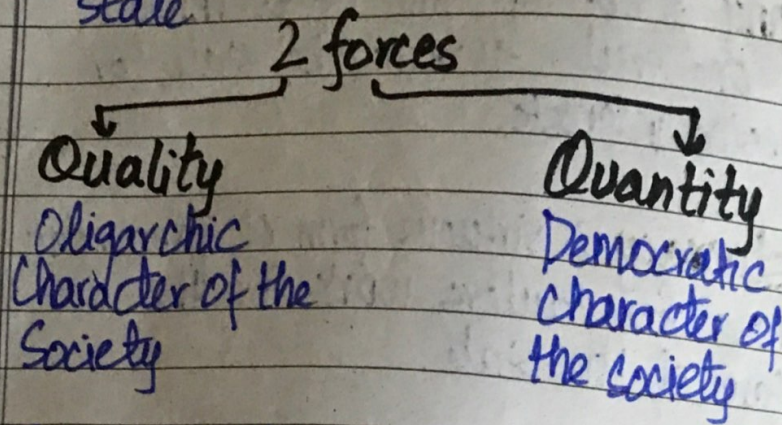 State
2 forces
Quality
Oligarchic
Character of the
Society
Quantity
Democratic
Character of
the society